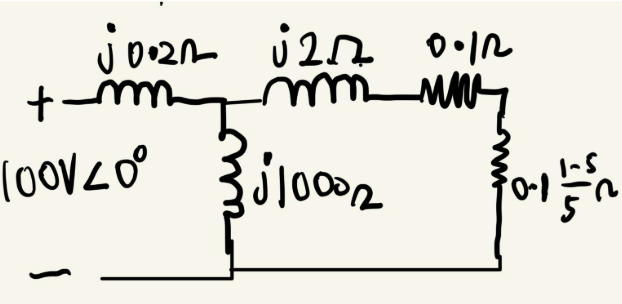 j0.2Ω j2Ω 0.1Ω
+
100V∠0°
j1000Ω
0.1 (1-5)/5 Ω
−